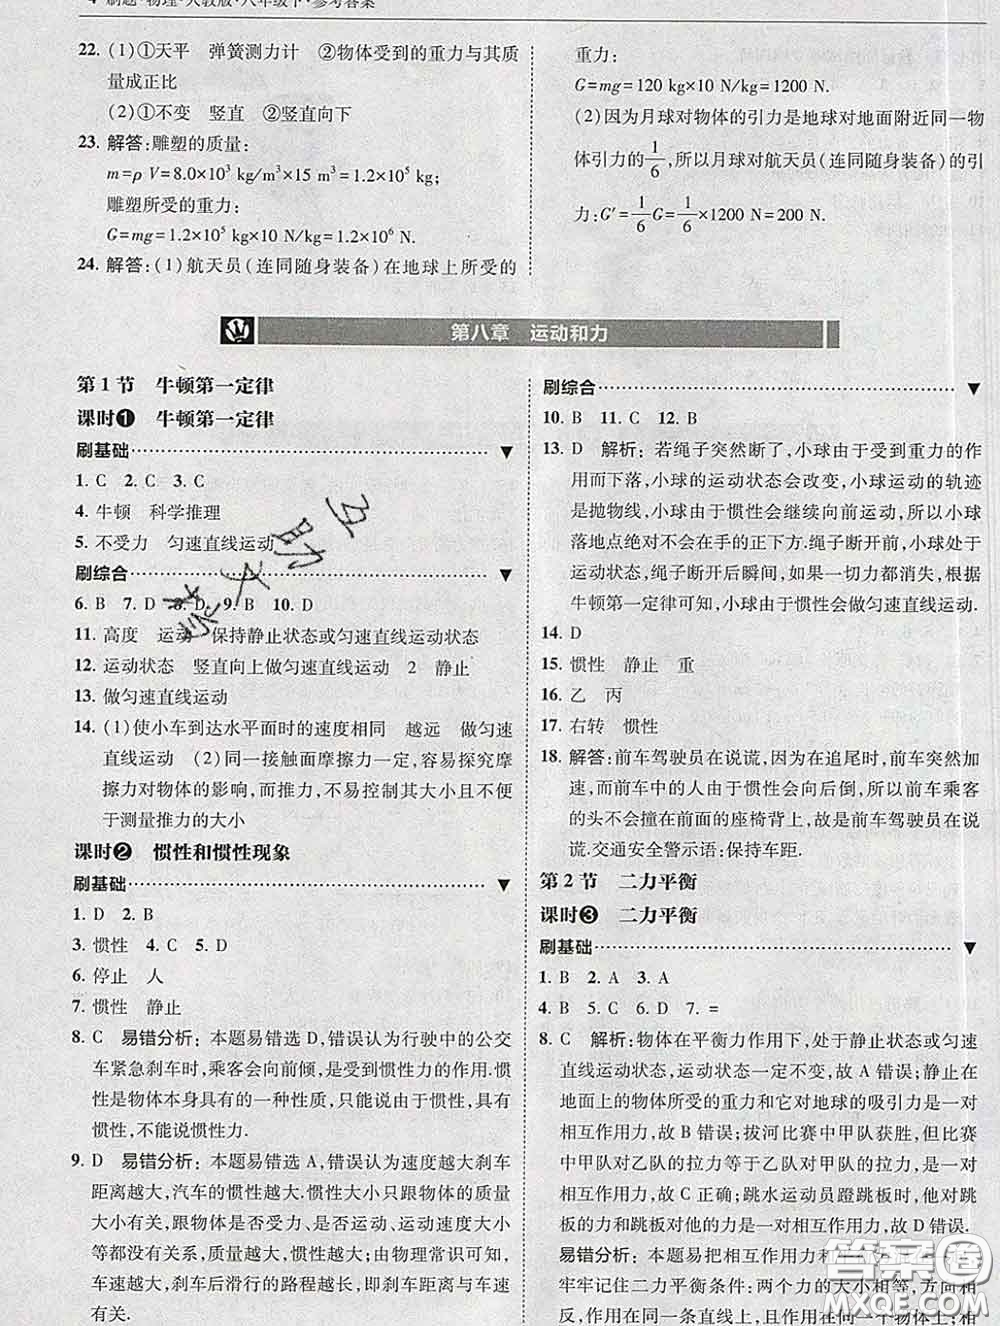 4 刷题·物理·人教版·八年级下·参考答案
22. (1)①天平 弹簧测力计 ②物体受到的重力与其质
量成正比
(2)①不变 竖直 ②竖直向下
23. 解答:雕塑的质量:
m=ρV=8.0×10³ kg/m³×15 m³=1.2×10⁵ kg;
雕塑所受的重力:
G=mg=1.2×10⁵ kg×10 N/kg=1.2×10⁶ N.
24. 解答:(1)航天员(连同随身装备)在地球上所受的
重力:
G=mg=120 kg×10 N/kg=1200 N.
(2)因为月球对物体的引力是地球对地面附近同一物
体引力的1/6,所以月球对航天员(连同随身装备)的引
力:G′=1/6G=1/6×1200 N=200 N.
第八章 运动和力
第1节 牛顿第一定律
课时❶ 牛顿第一定律
刷基础
1. C 2. C 3. C
4. 牛顿 科学推理
5. 不受力 匀速直线运动
刷综合
6. B 7. D 8. D 9. B 10. D
11. 高度 运动 保持静止状态或匀速直线运动状态
12. 运动状态 竖直向上做匀速直线运动 2 静止
13. 做匀速直线运动
14. (1)使小车到达水平面时的速度相同 越远 做匀速
直线运动 (2)同一接触面摩擦力一定,容易探究摩
擦力对物体的影响,而推力,不易控制其大小且不便
于测量推力的大小
课时❷ 惯性和惯性现象
刷基础
1. D 2. B
3. 惯性 4. C 5. D
6. 停止 人
7. 惯性 静止
8. C 易错分析:本题易错选D,错误认为行驶中的公交
车紧急刹车时,乘客会向前倾,是受到惯性力的作用.惯
性是物体本身具有的一种性质,只能说由于惯性,具有
惯性,不能说惯性力.
9. D 易错分析:本题易错选A,错误认为速度越大刹车
距离越大,汽车的惯性越大.惯性大小只跟物体的质量
大小有关,跟物体是否受力、是否运动、运动速度大小
等都没有关系,质量越大,惯性越大;由物理常识可知,
车速越大,刹车后滑行的路程越长,即刹车距离与车速
有关.
刷综合
10. B 11. C 12. B
13. D 解析:若绳子突然断了,小球由于受到重力的作
用而下落,小球的运动状态会改变,小球运动的轨迹
是抛物线,小球由于惯性会继续向前运动,所以小球
落地点绝对不会在手的正下方.绳子断开前,小球处于
运动状态,绳子断开后瞬间,如果一切力都消失,根据
牛顿第一定律可知,小球由于惯性会做匀速直线运动.
14. D
15. 惯性 静止 重
16. 乙 丙
17. 右转 惯性
18. 解答:前车驾驶员在说谎,因为在追尾时,前车突然加
速,而前车中的人由于惯性会向后倒,所以前车乘客
的头不会撞在前面的座椅背上,故是前车驾驶员在说
谎.交通安全警示语:保持车距.
第2节 二力平衡
课时❸ 二力平衡
刷基础
1. B 2. A 3. A
4. B 5. C 6. D 7. =
8. C 解析:物体在平衡力作用下,处于静止状态或匀速
直线运动状态,运动状态一定不变,故A错误;静止在
地面上的物体所受的重力和它对地球的吸引力是一对
相互作用力,故B错误;拔河比赛中甲队获胜,但比赛
中甲队对乙队的拉力等于乙队对甲队的拉力,是一对
相互作用力,故C正确;跳水运动员蹬跳板时,他对跳
板的力和跳板对他的力是一对相互作用力,故D错误.
易错分析:本题易把相互作用力和
牢牢记住二力平衡条件:两个力的大小相等,方向相
反,作用在同一条直线上,且作用在同一个物体上,相
作业互助
答案圈
MXQE.COM